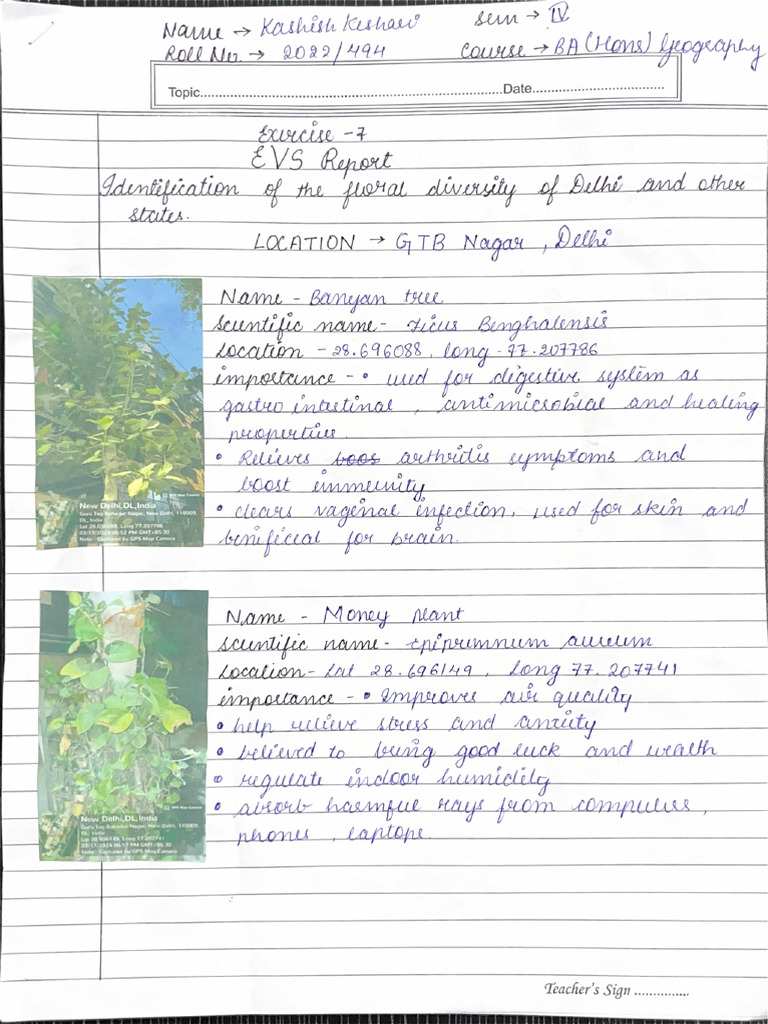 Name → Kashish Keshari Sem → IV
Roll No. → 2022/494 Course → BA (Hons) Geography
Topic.....Date.....
Exercise -7
EVS Report
Identification of the floral diversity of Delhi and other
states.
LOCATION → GTB Nagar, Delhi
Name - Banyan tree
Scientific name - Ficus Benghalensis
Location - 28.696088, long - 77.207786
importance - • used for digestive system as
gastro intestinal, antimicrobial and healing
properties.
• Relieves boos arthritis symptoms and
boost immunity
• clears vaginal infection, used for skin and
benificial for brain.
New Delhi,DL,India
DL, India
Note : Captured by GPS Map Camera
Name - Money plant
Scientific name - Epipremnum aureum
Location - Lat 28.696149, Long 77.207741
importance - • Improves air quality
• help relieve stress and anxiety
• believed to bring good luck and wealth
• regulate indoor humidity
• absorb harmful rays from computers,
phones, laptops.
New Delhi,DL,India
DL, India
Note : Captured by GPS Map Camera
Teacher's Sign ...............